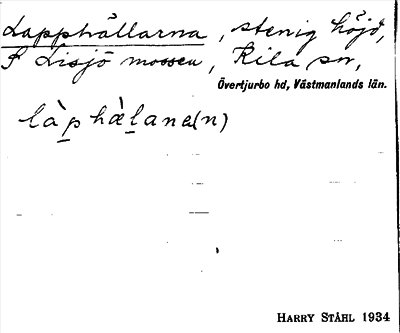 Lapphällarna, stenig höjd,
S Lisjö mossen, Kila sn,
Övertjurbo hd, Västmanlands län.
là̀p hæ̀lana(n)
HARRY STÅHL 1934